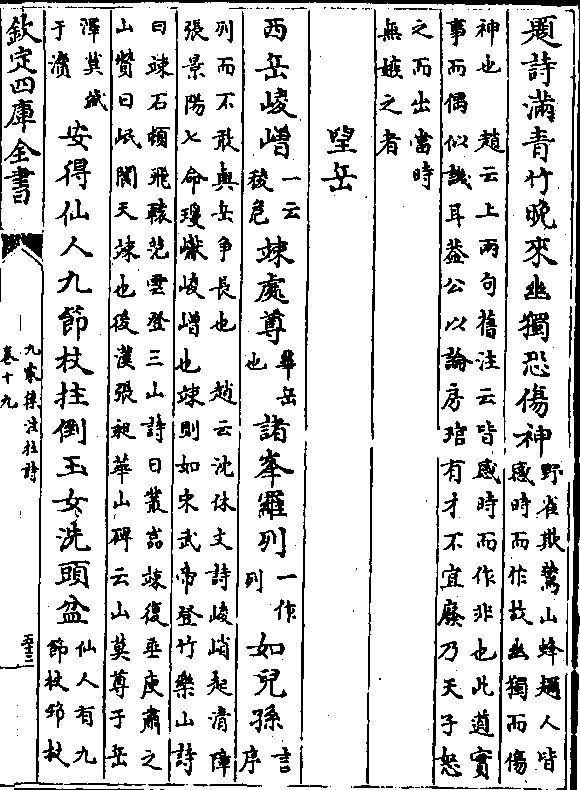 題詩滿青竹晚來幽獨恐傷神
野雀欺鶯山蜂趕人皆
感時而作故幽獨而傷
神也　趙云上兩句舊注云皆感時而作非也此道實
事而偶似譏耳蓋公以論房琯有才不宜廢乃天子怒
之而出當時
無嫉之者
望岳
西岳崚嶒
一云
稜危
竦處尊
華岳
也
諸峯羅列
一作
列
如兒孫
言
序
列而不敢與岳爭長也　趙云沈休文詩崚峭起清障
張景陽七命瓊巘崚嶒也竦則如宋武帝登竹樂山詩
曰竦石頓飛轅范雲登三山詩曰叢嵓竦復垂庾肅之
山贊曰岷閬天竦也後漢張昶華山碑云山莫尊于岳
澤莫盛
于瀆
安得仙人九節杖拄倒玉女洗頭盆
仙人有九
節杖邛杖
欽定四庫全書
九家集注杜詩
卷十九